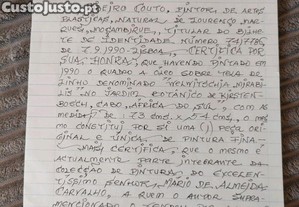 CustoJusto.pt
DEIRO COUTO, PINTOR DE ARTES
PLÁSTICAS, NATURAL DE LOURENÇO MAR-
QUES, MOÇAMBIQUE, TITULAR DO BILHE-
TE DE IDENTIDADE NÚMERO
DE 7.9.1990 - LISBOA, CERTIFICA POR
SUA HONRA, QUE HAVENDO PINTADO EM
1990 O QUADRO A ÓLEO SOBRE TELA DE
LINHO DENOMINADO "WELWITSCHIA MIRABI-
LIS" NO JARDIM BOTÂNICO DE KIRSTEN-
BOSCH, CABO, ÁFRICA DO SUL", COM AS
MEDIDAS DE: 73 cmd. x 54 cms., O MES-
MO CONSTITUI POR SI UMA (1) PEÇA ORI-
GINAL E ÚNICA DE PINTURA FINA.
MAIS CERTIFICA, QUE O MESMO É
ACTUALMENTE PARTE INTEGRANTE DA
COLECÇÃO DE PINTURA, DO EXCELEN-
TÍSSIMO SENHOR, MÁRIO DE ALMEIDA
CARVALHO, A QUEM O AUTOR SUPRA-
MENCIONADO O VENDEU